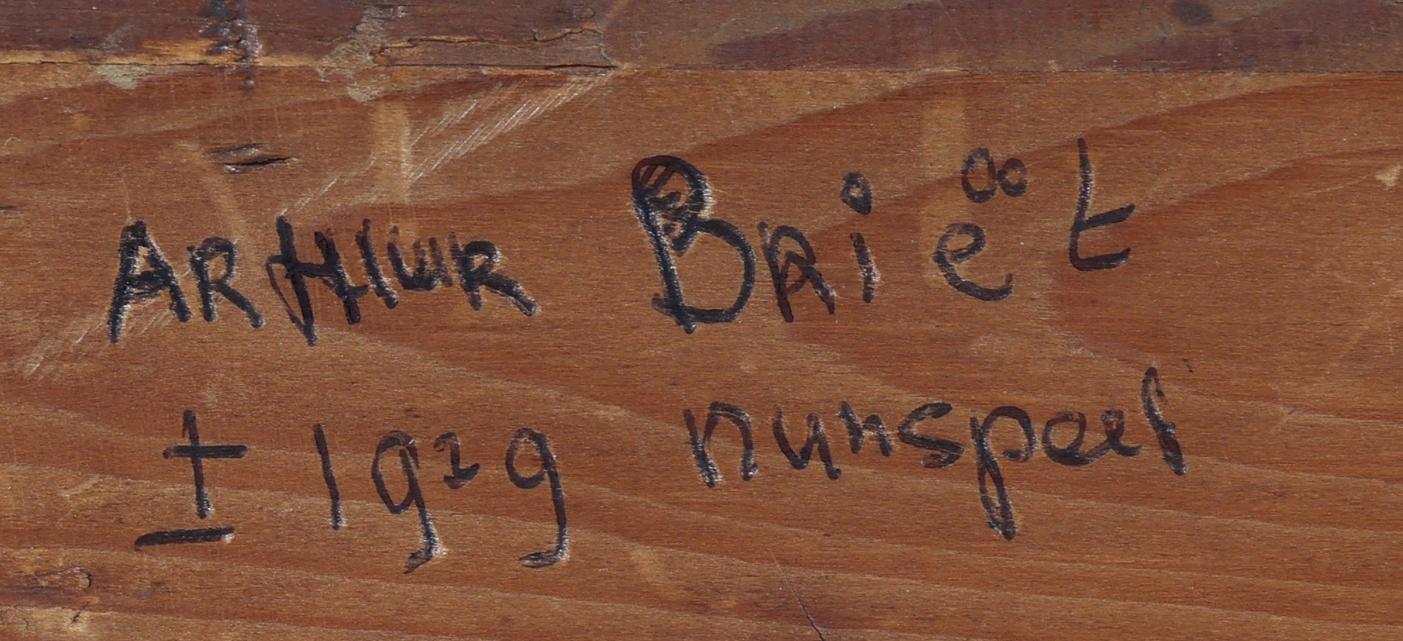 ARTHUR Briët
± 1929 nunspeet